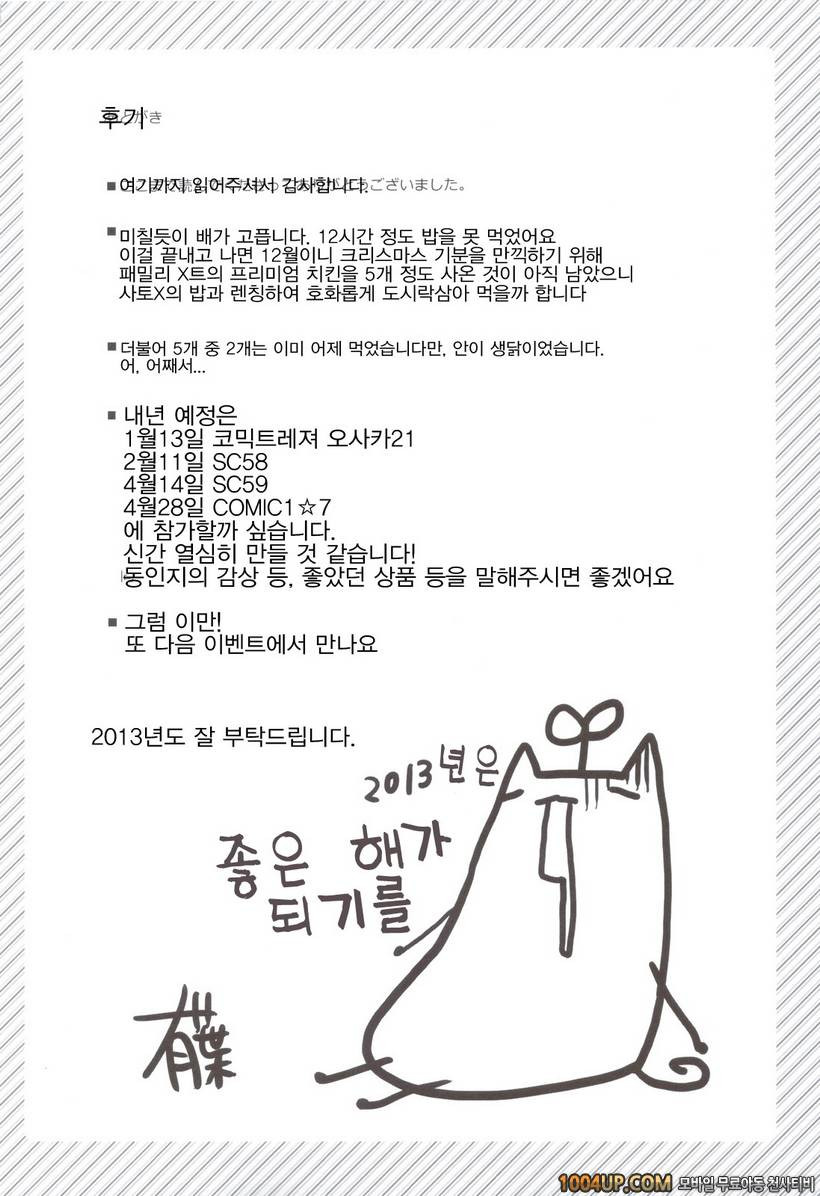 후기
여기까지 읽어주셔서 감사합니다.
■ 미칠듯이 배가 고픕니다. 12시간 정도 밥을 못 먹었어요
이걸 끝내고 나면 12월이니 크리스마스 기분을 만끽하기 위해
패밀리 X트의 프리미엄 치킨을 5개 정도 사온 것이 아직 남았으니
사토X의 밥과 렌칭하여 호화롭게 도시락삼아 먹을까 합니다
■ 더불어 5개 중 2개는 이미 어제 먹었습니다만, 안이 생닭이었습니다.
어, 어째서...
■ 내년 예정은
1월13일 코믹트레져 오사카21
2월11일 SC58
4월14일 SC59
4월28일 COMIC1☆7
에 참가할까 싶습니다.
신간 열심히 만들 것 같습니다!
동인지의 감상 등, 좋았던 상품 등을 말해주시면 좋겠어요
■ 그럼 이만!
또 다음 이벤트에서 만나요
2013년도 잘 부탁드립니다.
2013년은
좋은 해가
되기를
有葉
1004UP.COM 모바일 무료야동 천사티비